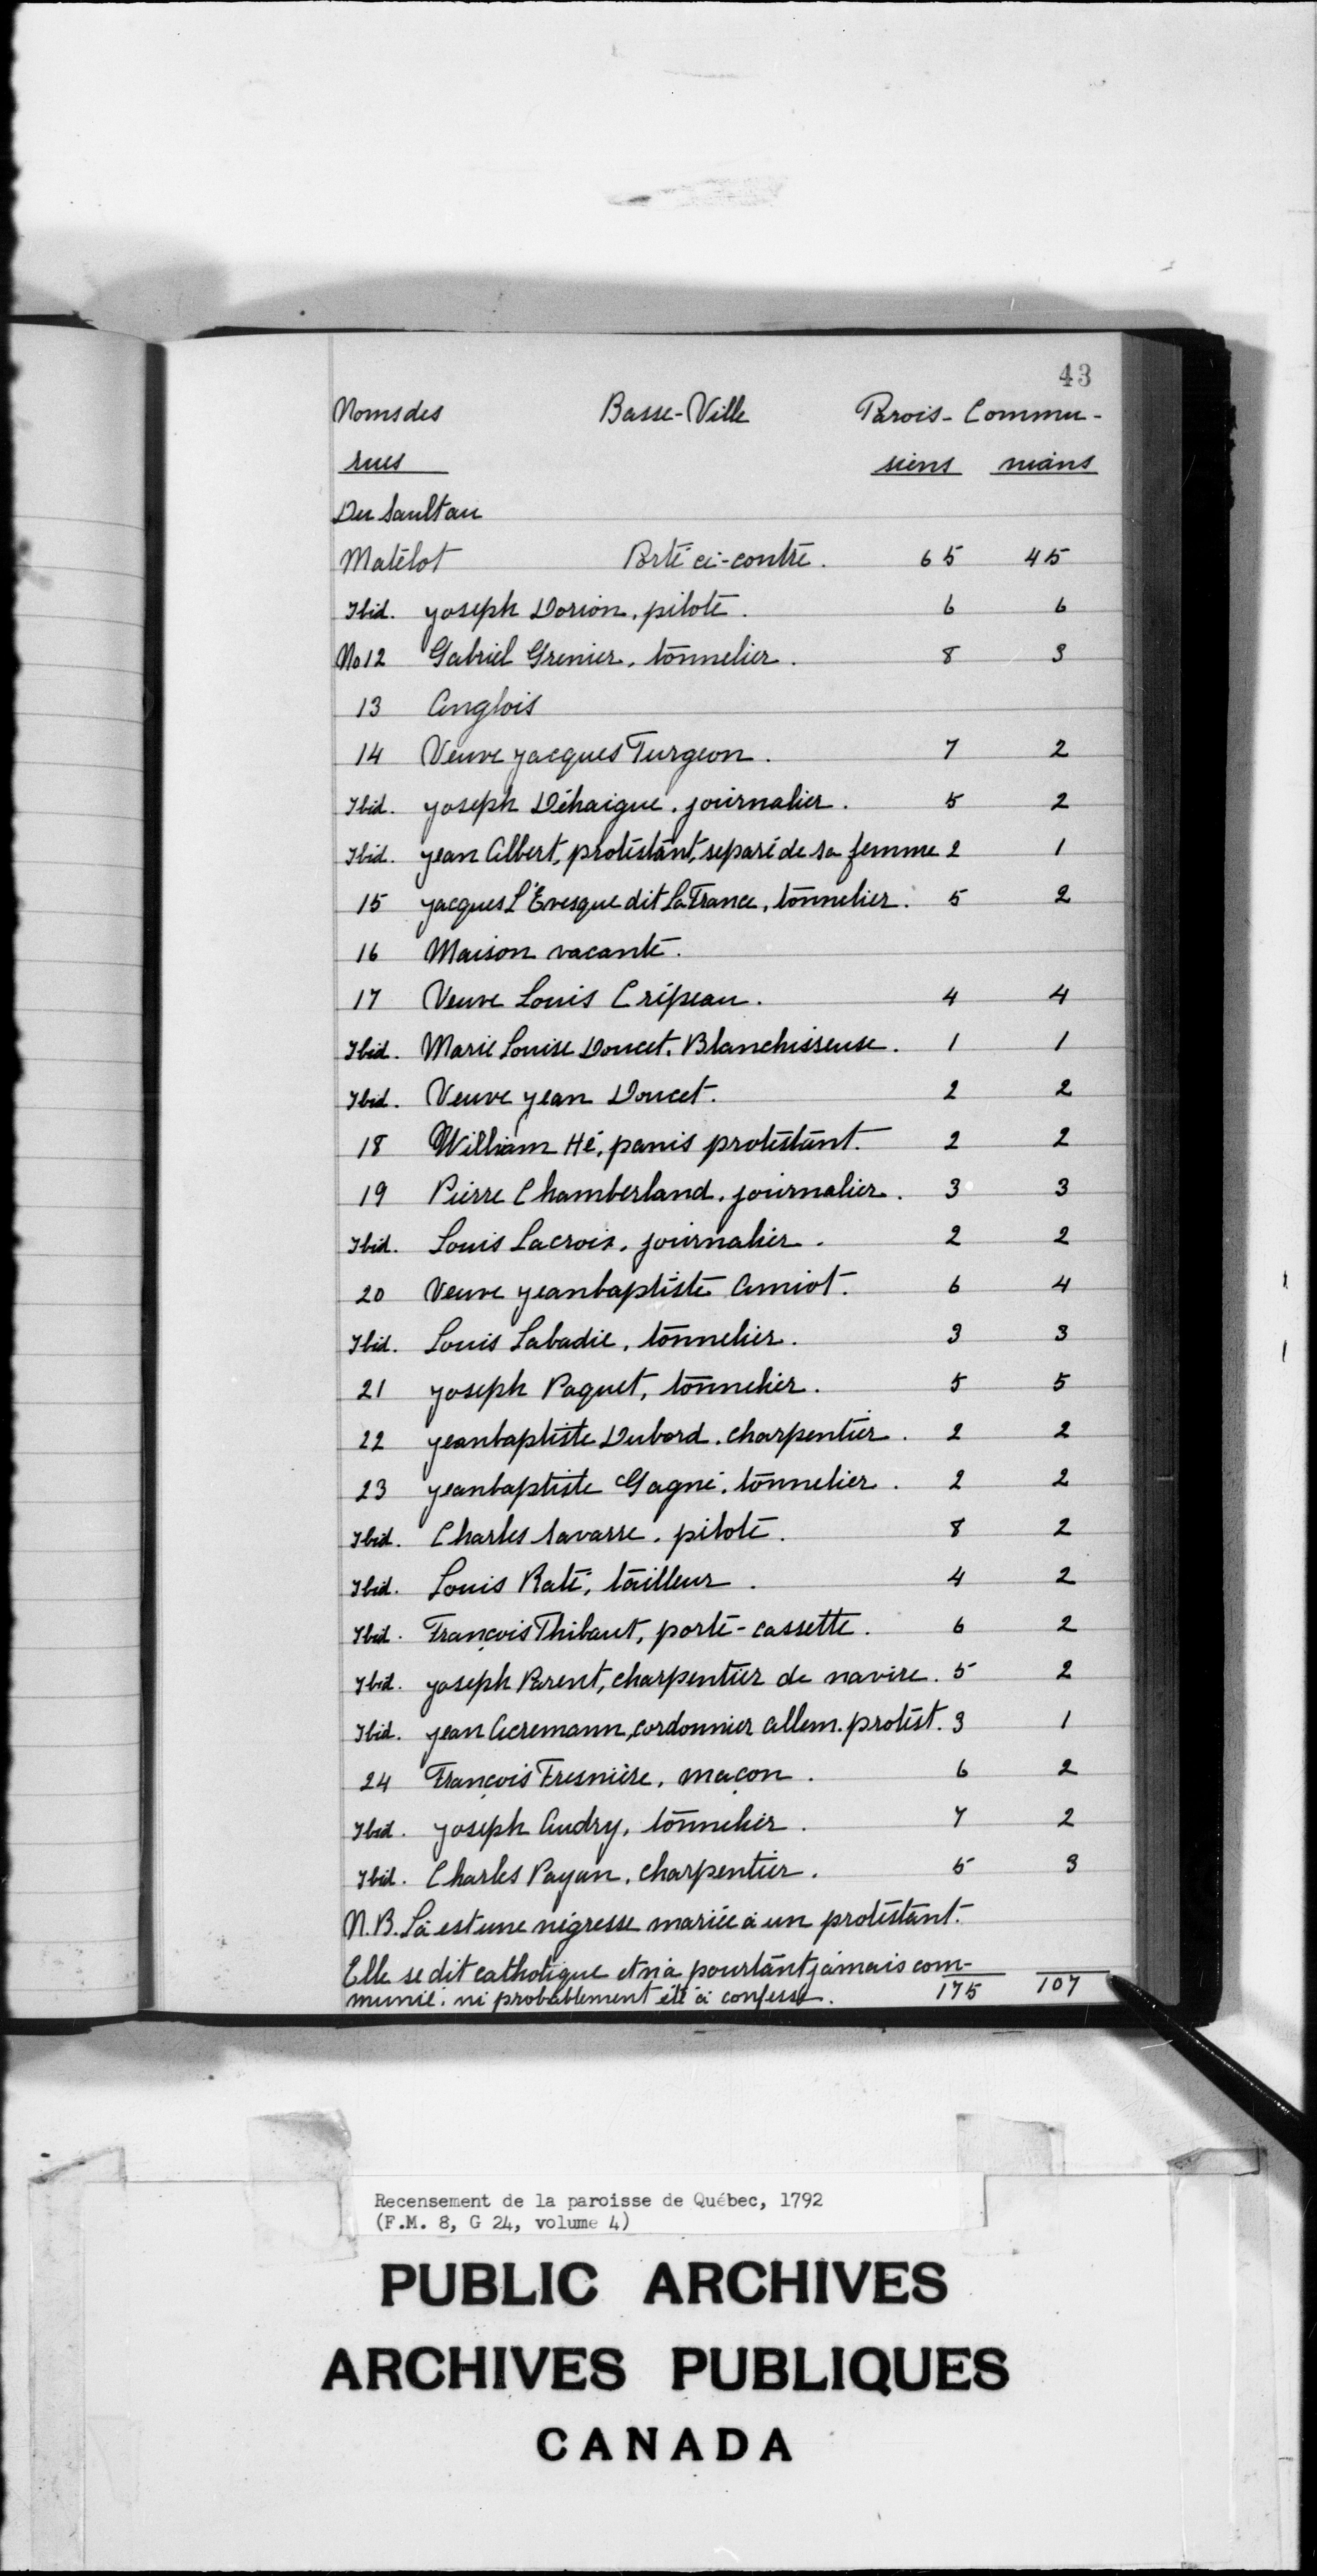 43
Noms des Basse-Ville Parois- Commu-
rues siens nians
Du Sault au
Matelot Porté ci-contre. 65 45
Ibid. Joseph Dorion, pilote. 6 6
No 12 Gabriel Grenier, tonnelier. 8 3
13 Anglois
14 Veuve Jacques Turgeon. 7 2
Ibid. Joseph Déhaigue, journalier. 5 2
Ibid. Jean Albert, protestant, separé de sa femme 2 1
15 Jacques L'Evesque dit LaFrance, tonnelier. 5 2
16 Maison vacante.
17 Veuve Louis Cripeau. 4 4
Ibid. Marie Louise Doucet, Blanchisseuse. 1 1
Ibid. Veuve Jean Doucet. 2 2
18 William Hé, panis protestant. 2 2
19 Pierre Chamberland, journalier. 3 3
Ibid. Louis Lacroix, journalier. 2 2
20 Veuve Jeanbaptiste Amiot. 6 4
Ibid. Louis Labadie, tonnelier. 3 3
21 Joseph Paquet, tonnelier. 5 5
22 Jeanbaptiste Dubord, charpentier. 2 2
23 Jeanbaptiste Gagné, tonnelier. 2 2
Ibid. Charles Savarre, pilote. 8 2
Ibid. Louis Raté, tailleur. 4 2
Ibid. François Thibaut, porte-cassette. 6 2
Ibid. Joseph Parent, charpentier de navire. 5 2
Ibid. Jean Acremann, cordonnier allem. protest. 3 1
24 François Fresnière, maçon. 6 2
Ibid. Joseph Audry, tonnelier. 7 2
Ibid. Charles Payan, charpentier. 5 3
N.B. Là est une négresse mariée à un protestant.
Elle se dit catholique et n'a pourtant jamais com-
munié, ni probablement été à confesse. 175 107
Recensement de la paroisse de Québec, 1792
(F.M. 8, G 24, volume 4)
PUBLIC ARCHIVES
ARCHIVES PUBLIQUES
CANADA